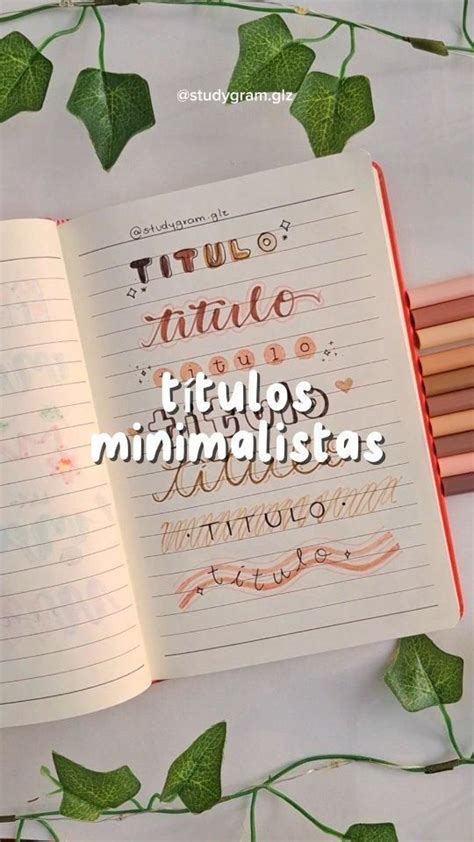 @studygram.glz
@studygram.glz
TITULO
titulo
titulo
titulo
títulos
minimalistas
titulo
TITULO
título